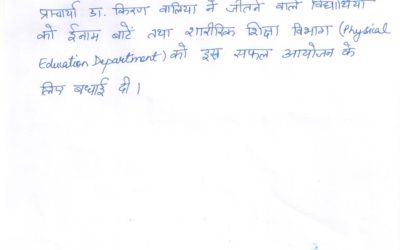 प्राचार्या डा. किरण वालिया ने जीतने वाले विद्यार्थियों
को ईनाम बाटें तथा शारीरिक शिक्षा विभाग (Physical
Education Department) को इस सफल आयोजन के
लिए बधाई दी।